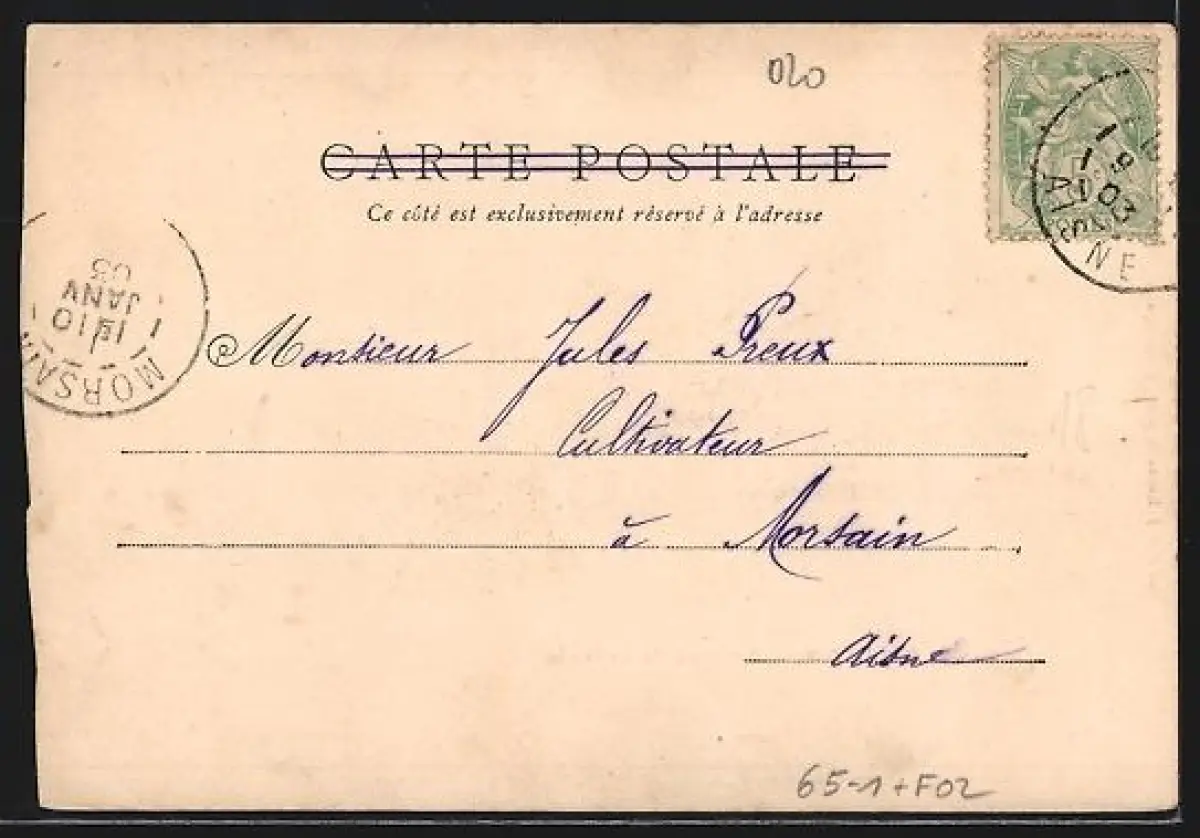 020
CARTE POSTALE
Ce côté est exclusivement réservé à l'adresse
1 -1 03
AISNE
MORSAIN
1
JANV
03
Monsieur Jules Preux
Cultivateur
à Morsain
Aisne
65-1+F02